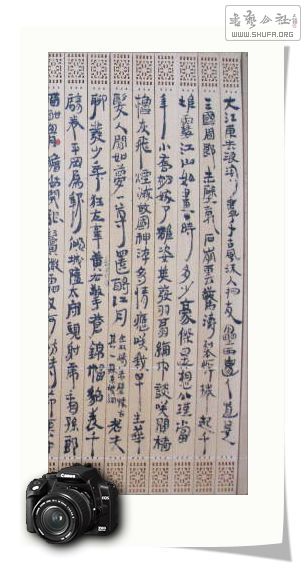 书艺公社
WWW.SHUFA.ORG
大江東去浪淘盡千古風流人物故壘西邊人道是
三國周郎赤壁亂石崩雲驚濤裂岸捲起千
堆雪江山如畫一時多少豪傑遙想公瑾當
年小喬初嫁了雄姿英發羽扇綸巾談笑間檣
櫓灰飛煙滅故國神遊多情應笑我早生華
髮人間如夢一尊還酹江月 赤壁懷古 老夫
聊發少年狂左牽黃右擎蒼錦帽貂裘千
騎卷平岡為報傾城隨太守親射虎看孫郎
酒酣胸膽尚開張鬢微霜又何妨持節
Canon
EOS